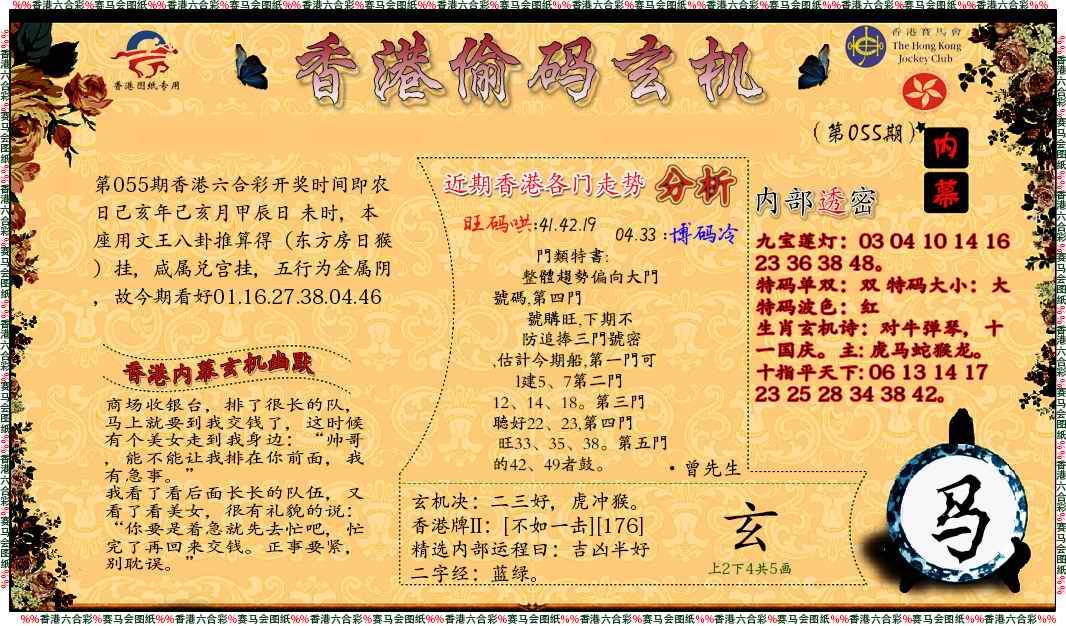 %%香港六合彩%赛马会图纸%%香港六合彩%赛马会图纸%%香港六合彩%赛马会图纸%%香港六合彩%赛马会图纸%%香港六合彩%赛马会图纸%%香港六合彩%赛马会图纸%%香港六合彩%%
香港图纸专用
香港偷码玄机
香港賽馬會
The Hong Kong
Jockey Club
(第055期)
内幕
第055期香港六合彩开奖时间即农
日己亥年己亥月甲辰日 未时，本
座用文王八卦推算得（东方房日猴
）挂，咸属兑宫挂，五行为金属阴
，故今期看好01.16.27.38.04.46
香港内幕玄机幽默
商场收银台，排了很长的队，
马上就要到我交钱了，这时候
有个美女走到我身边：“帅哥
，能不能让我排在你前面，我
有急事。”
我看了看后面长长的队伍，又
看了看美女，很有礼貌的说：
“你要是着急就先去忙吧，忙
完了再回来交钱。正事要紧，
别耽误。”
近期香港各门走势 分析
旺码哄:41.42.19
04.33 :博码冷
門類特書:
整體趨勢偏向大門
號碼,第四門
號購旺,下期不
防追捧三門號密
,估計今期船,第一門可
1建5、7第二門
12、14、18。第三門
聽好22、23,第四門
旺33、35、38。第五門
的42、49者鼓。
·曾先生
玄机决：二三好，虎冲猴。
香港牌II：[不如一击][176]
精选内部运程曰：吉凶半好
二字经：蓝绿。
玄
上2下4共5画
内部透密
九宝莲灯：03 04 10 14 16
23 36 38 48。
特码单双：双 特码大小：大
特码波色：红
生肖玄机诗：对牛弹琴，十
一国庆。主: 虎马蛇猴龙。
十指平天下: 06 13 14 17
23 25 28 34 38 42。
马
%%香港六合彩%赛马会图纸%%香港六合彩%赛马会图纸%%香港六合彩%赛马会图纸%%香港六合彩%赛马会图纸%%香港六合彩%赛马会图纸%%香港六合彩%赛马会图纸%%香港六合彩%%